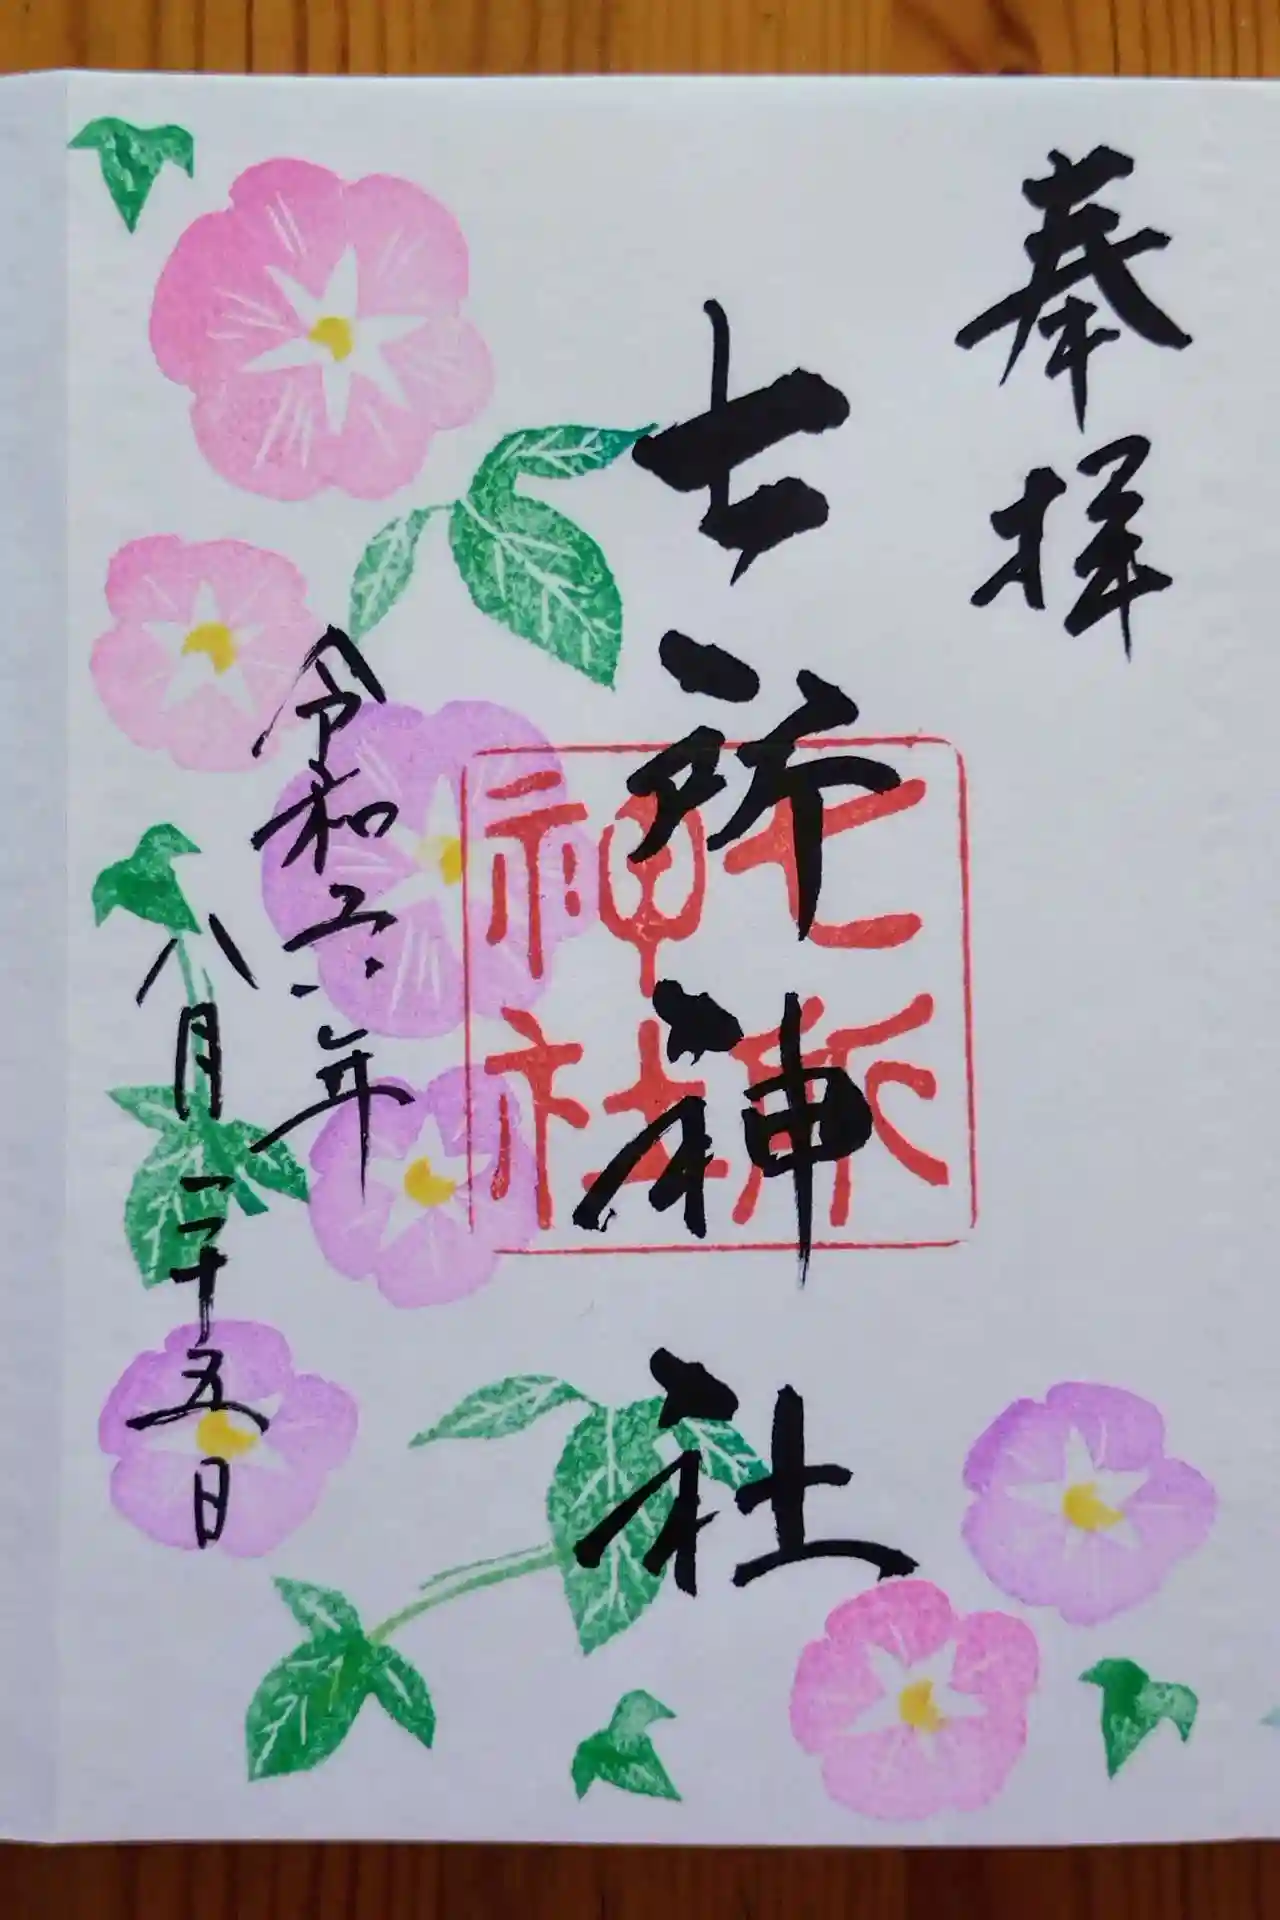 奉拝
七所神社
七所神社
令和六年
八月二十五日